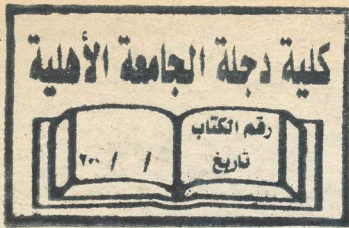 كلية دجلة الجامعة الأهلية
رقم الكتاب
تاريخ
/ / ٢٠٠